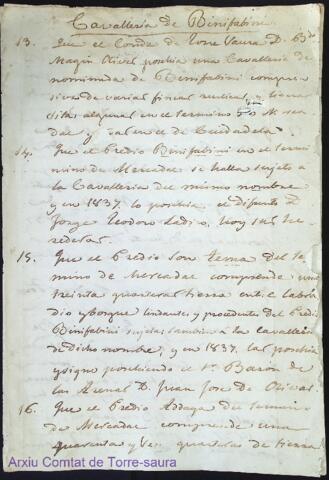 Cavalleria de Binifabini
13. Que el Conde de Torre Saura D. Bdo
Magin Olivar poschia una Cavalleria de
nominada de Binifabini compren
siva de varias fincas rusticas, y tierra
sitas algunas en el termino de Mercadal
y en el de Ciudadela
14. Que el Predio Binifabini en el termi
mino de Mercadal se halla sujeto a
la Cavalleria del mismo nombre,
y en 1837. lo poschia el difunto D.
Jorge Teodoro Ladico, hoy sus he
rederos.
15. Que el Predio Son tema del ter
mino de Mercadal comprende una
treinta quarteras tierra entre labra
dio y bosque lindante y procedente del Predio
Binifabini sujetas tambien a la Cavalleria
de dicho nombre, y en 1837. las poschia
y sigue poschiendo el Sr. Baron de
las Arenas D. Juan Jose de Olivar.
16. Que el Predio Addaya del termino
de Mercadal comprende una
quarenta y tres quarteras de tierra
Arxiu Comtat de Torre-saura